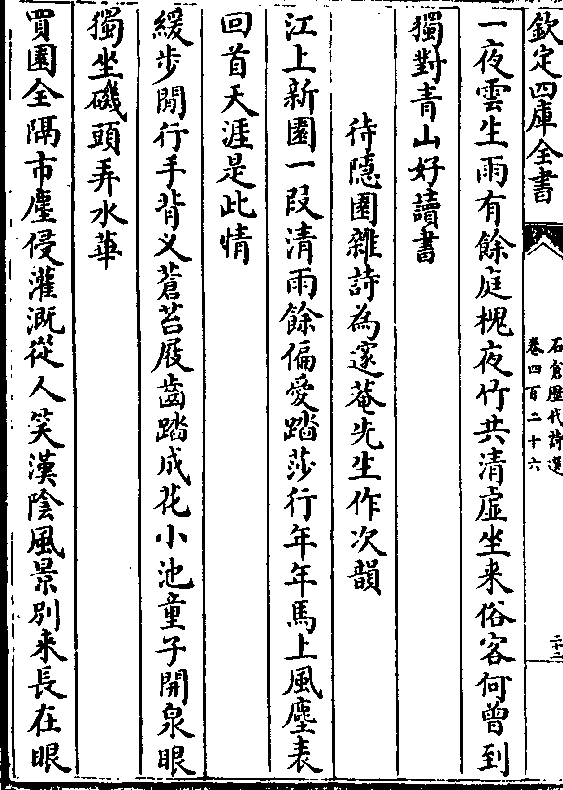 欽定四庫全書
石倉歷代詩選
卷四百二十六
二十二
一夜雲生雨有餘庭槐夜竹共清虛坐来俗客何曾到
獨對青山好讀書
待隱園雜詩為邃菴先生作次韻
江上新園一段清雨餘偏愛踏莎行年年馬上風塵表
回首天涯是此情
緩步閒行手背义蒼苔屐齒踏成花小池童子開泉眼
獨坐磯頭弄水華
買園全隔市塵侵灌溉從人笑漢陰風景別来長在眼